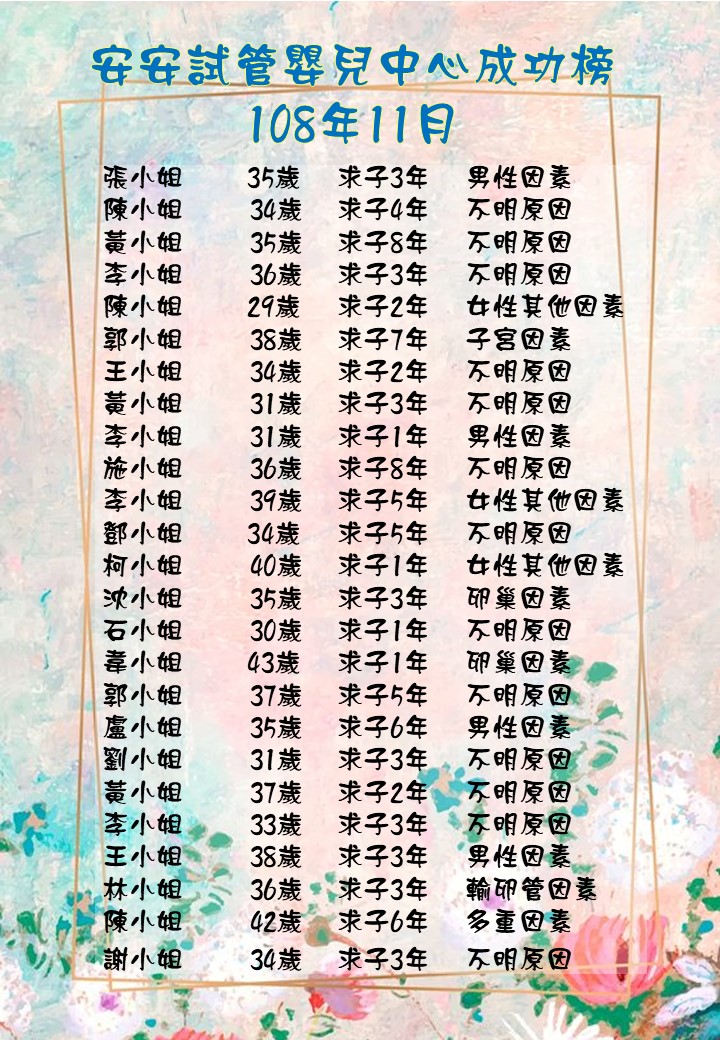 安安試管嬰兒中心成功榜
108年11月
張小姐 35歲 求子3年 男性因素
陳小姐 34歲 求子4年 不明原因
黃小姐 35歲 求子8年 不明原因
李小姐 36歲 求子3年 不明原因
陳小姐 29歲 求子2年 女性其他因素
郭小姐 38歲 求子7年 子宮因素
王小姐 34歲 求子2年 不明原因
黃小姐 31歲 求子3年 不明原因
李小姐 31歲 求子1年 男性因素
施小姐 36歲 求子8年 不明原因
李小姐 39歲 求子5年 女性其他因素
鄧小姐 34歲 求子5年 不明原因
柯小姐 40歲 求子1年 女性其他因素
沈小姐 35歲 求子3年 卵巢因素
石小姐 30歲 求子1年 不明原因
韋小姐 43歲 求子1年 卵巢因素
郭小姐 37歲 求子5年 不明原因
盧小姐 35歲 求子6年 男性因素
劉小姐 31歲 求子3年 不明原因
黃小姐 37歲 求子2年 不明原因
李小姐 33歲 求子3年 不明原因
王小姐 38歲 求子3年 男性因素
林小姐 36歲 求子3年 輸卵管因素
陳小姐 42歲 求子6年 多重因素
謝小姐 34歲 求子3年 不明原因